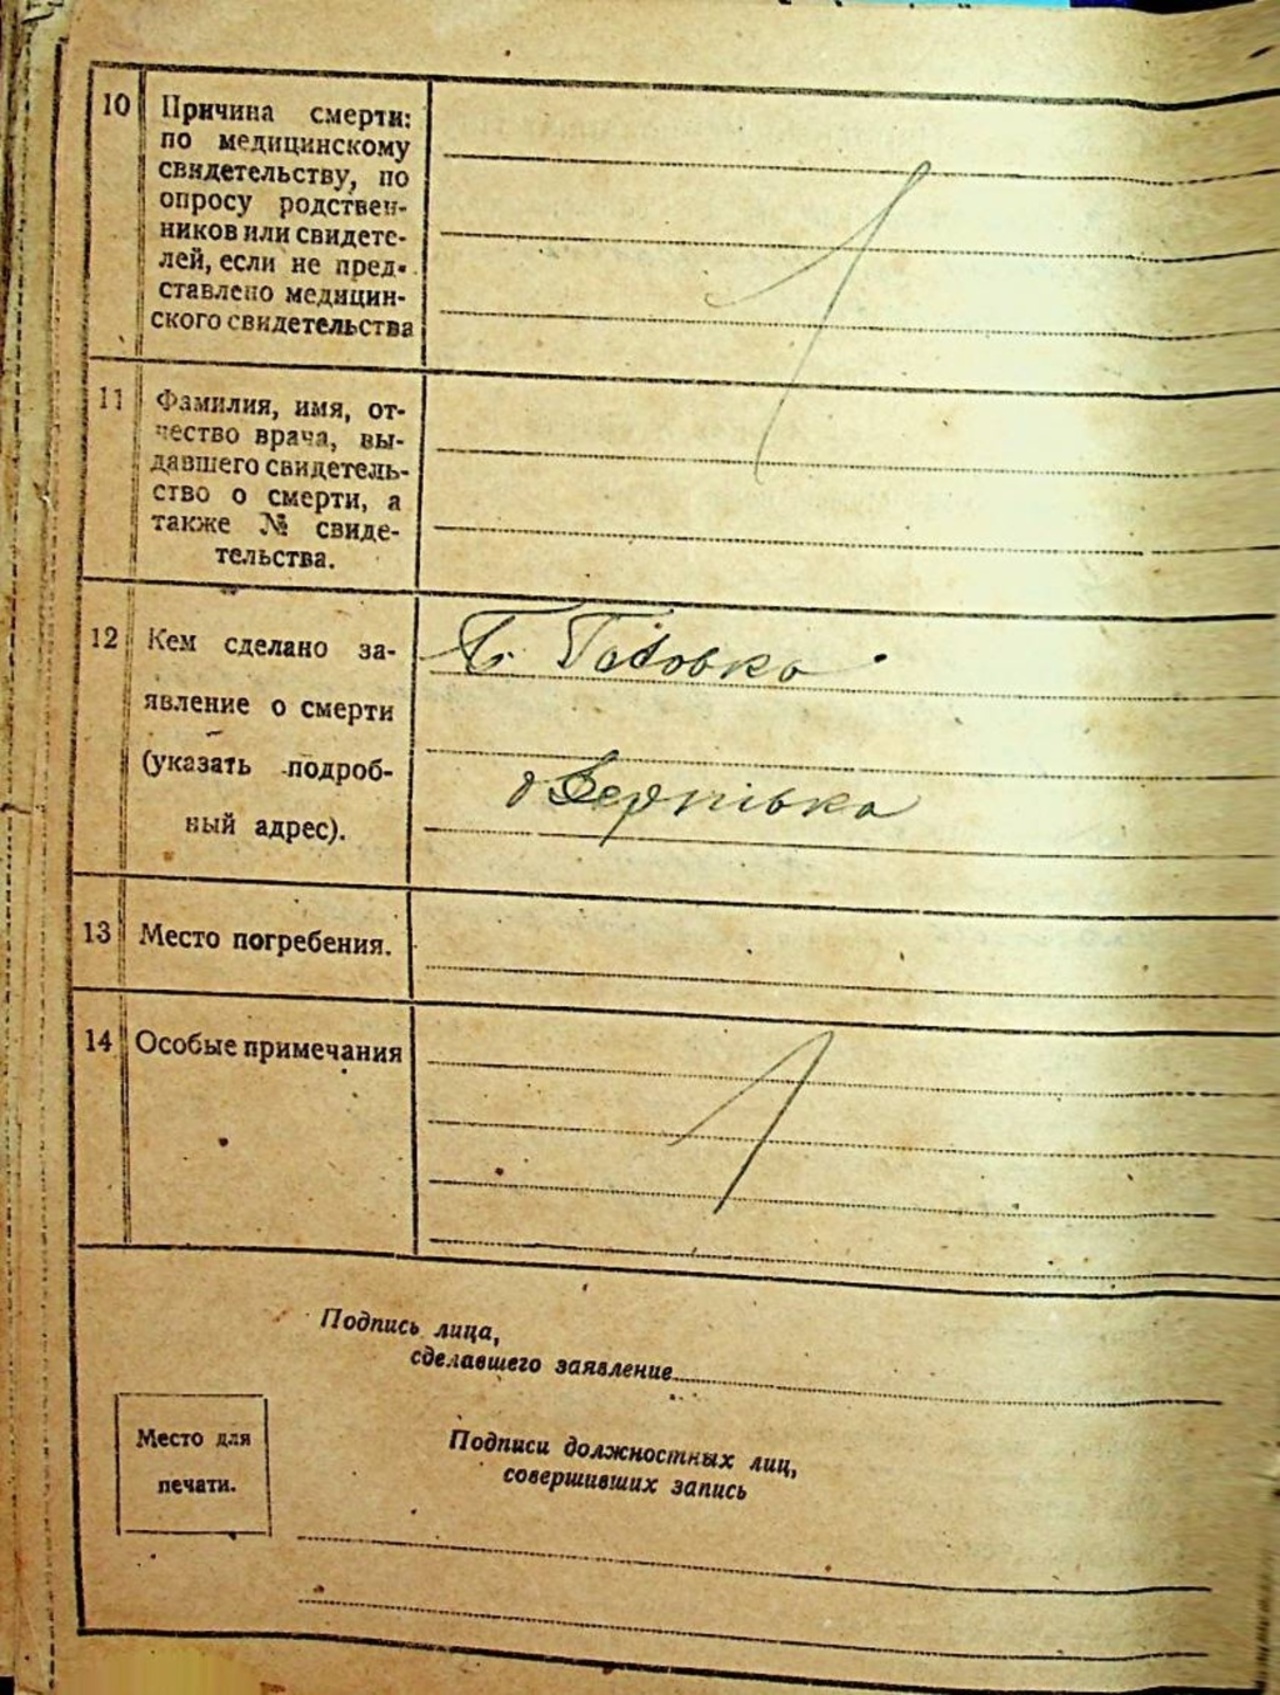 10
Причина смерти:
по медицинскому
свидетельству, по
опросу родствен-
ников или свидете-
лей, если не пред-
ставлено медицин-
ского свидетельства
11
Фамилия, имя, от-
чество врача, вы-
давшего свидетель-
ство о смерти, а
также № свиде-
тельства.
12
Кем сделано за-
явление о смерти
(указать подроб-
ный адрес).
13
Место погребения.
14
Особые примечания
Подпись лица,
сделавшего заявление
Место для
печати.
Подписи должностных лиц,
совершивших запись